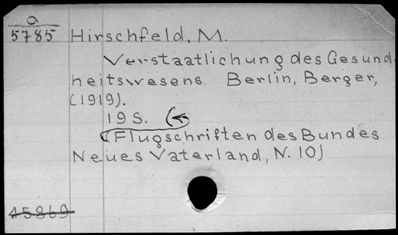 O
5785 Hirschfeld, M.
Verstaatlichung des Gesund-
heitswesens. Berlin, Berger,
(1919).
19 S.
(Flugschriften des Bundes
Neues Vaterland, N. 10)
45869